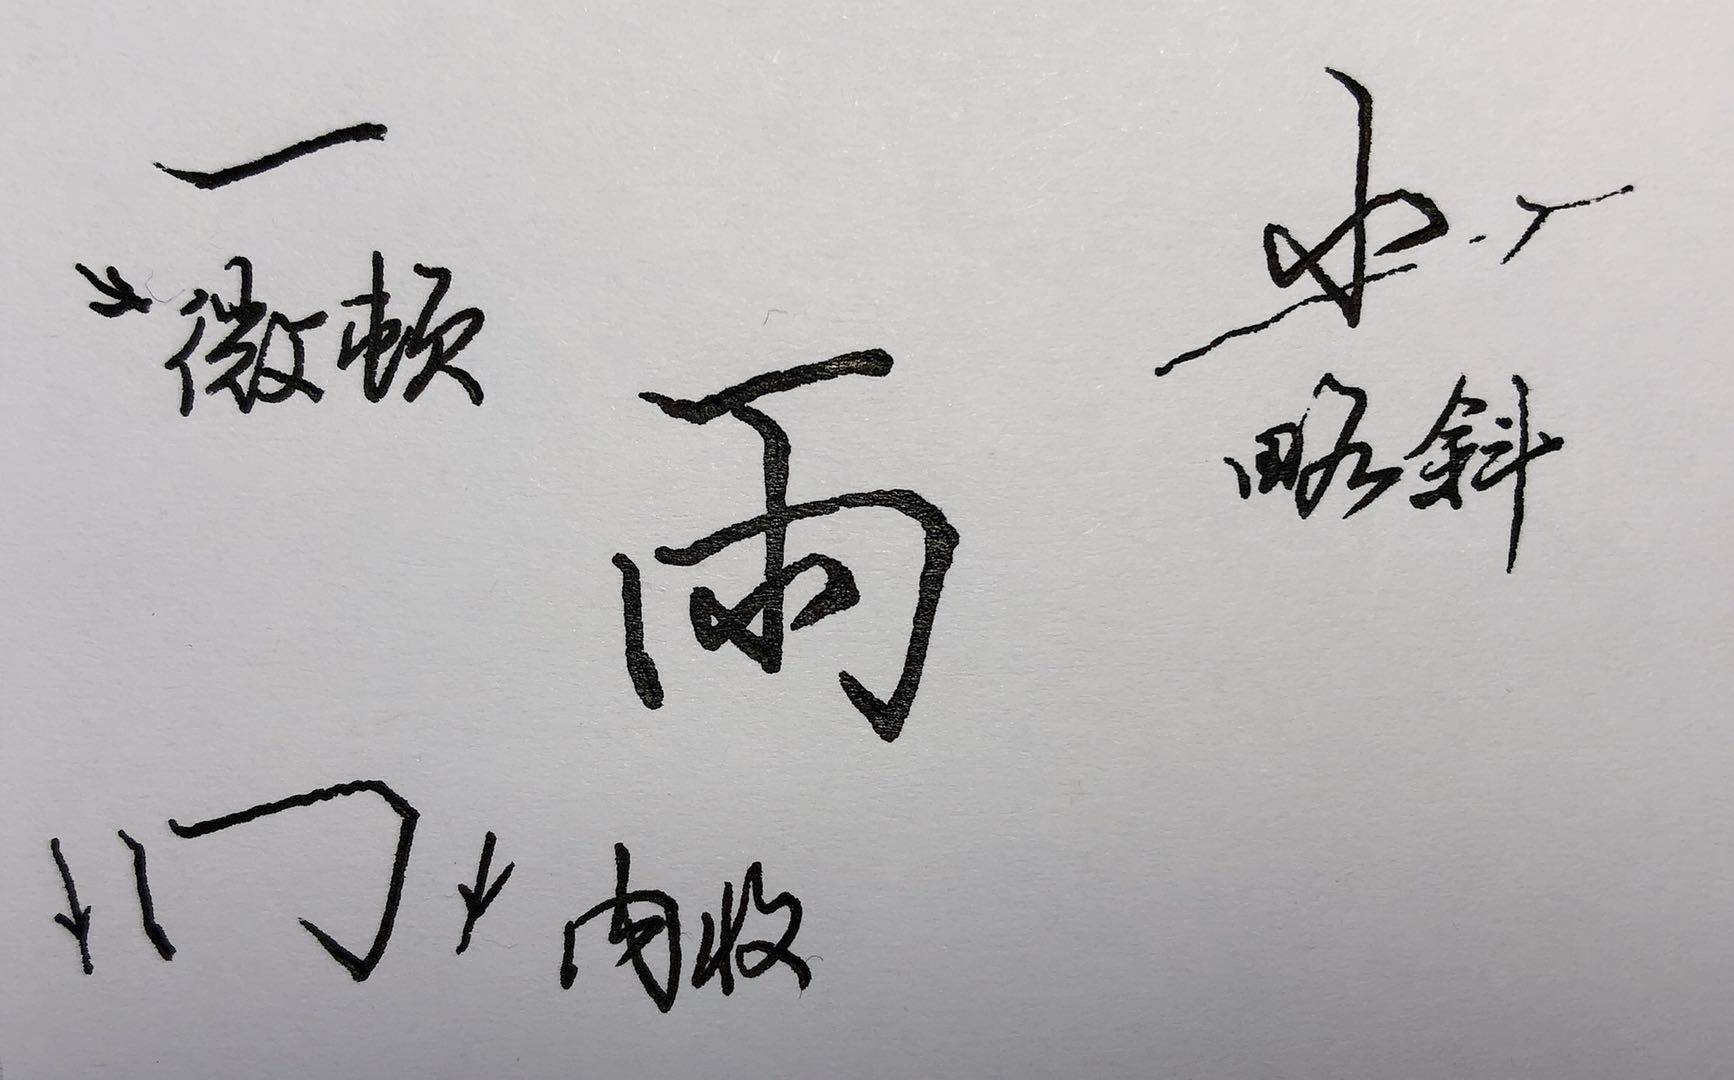 微顿
略斜
雨
内收